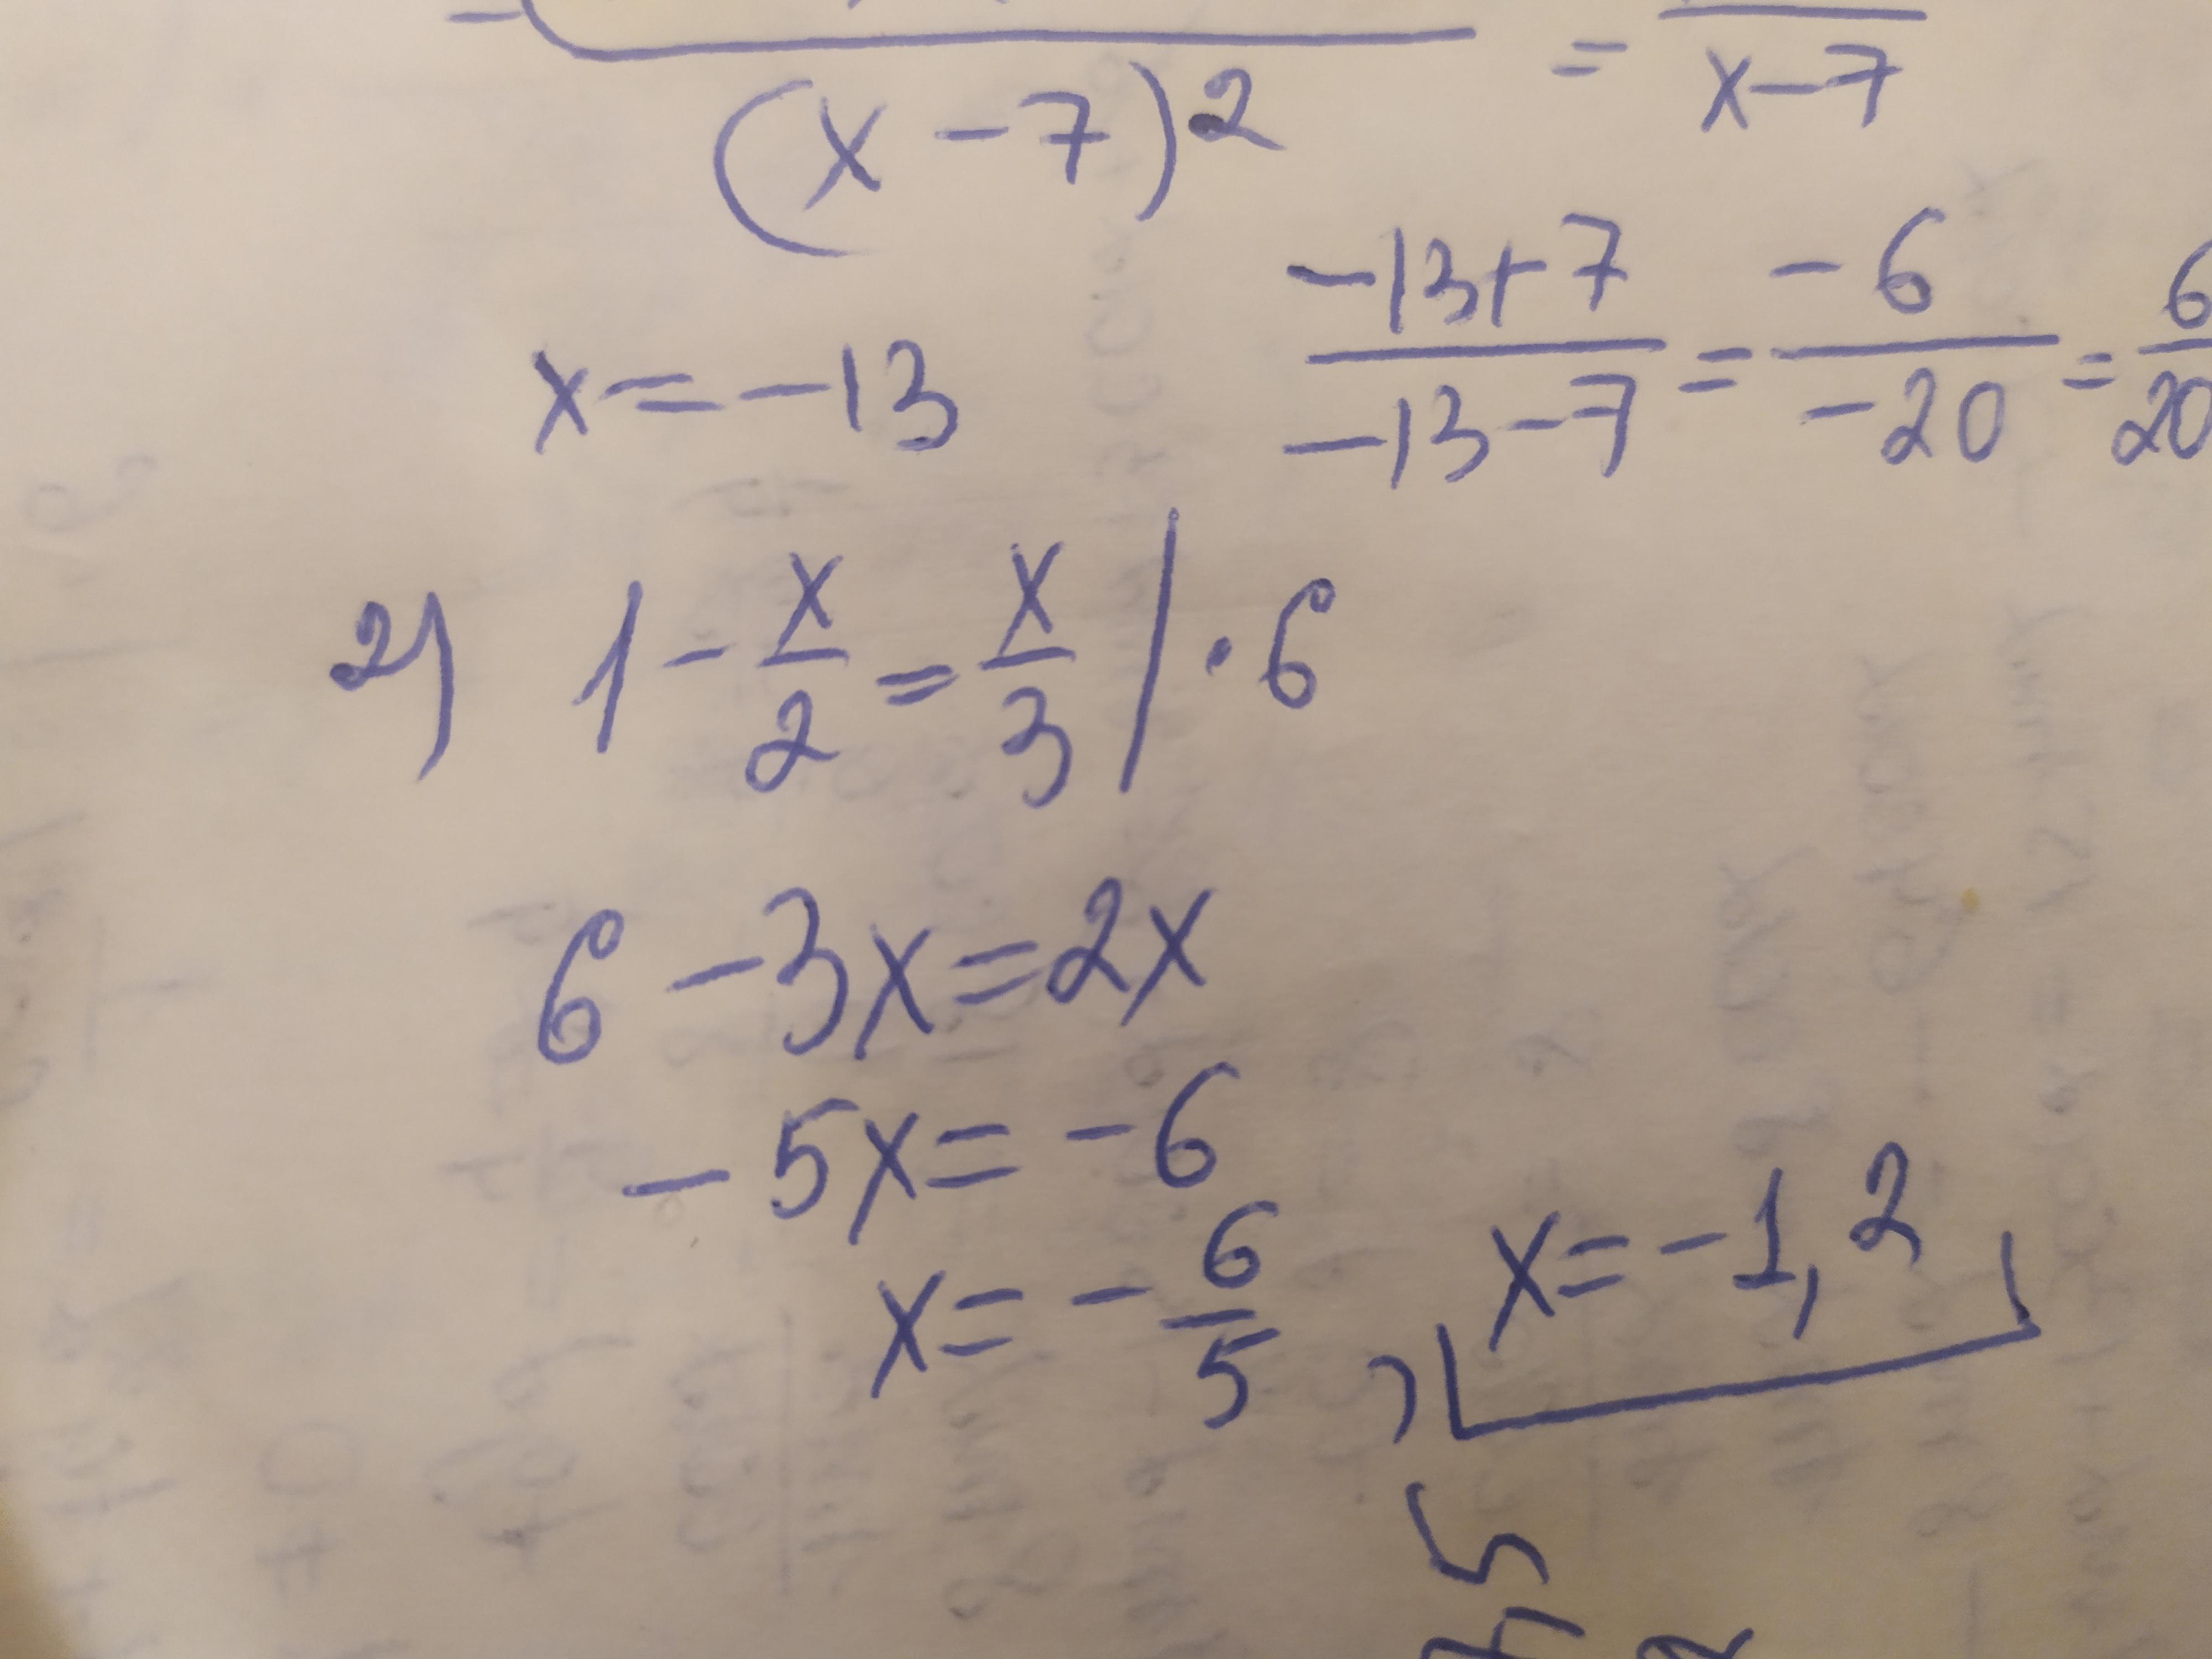 (x-7)² = x-7
x=-13 (-13+7)/(-13-7) = (-6)/(-20) = 6/20
2) 1 - x/2 = x/3 | ·6
6 - 3x = 2x
-5x = -6
x = -6/5, x = -1,2